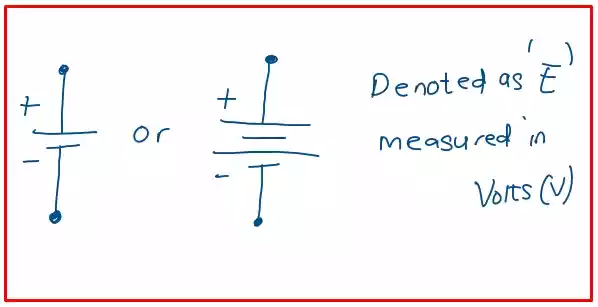 +
-
or
+
-
Denoted as 'E'
measured in
Volts (V)